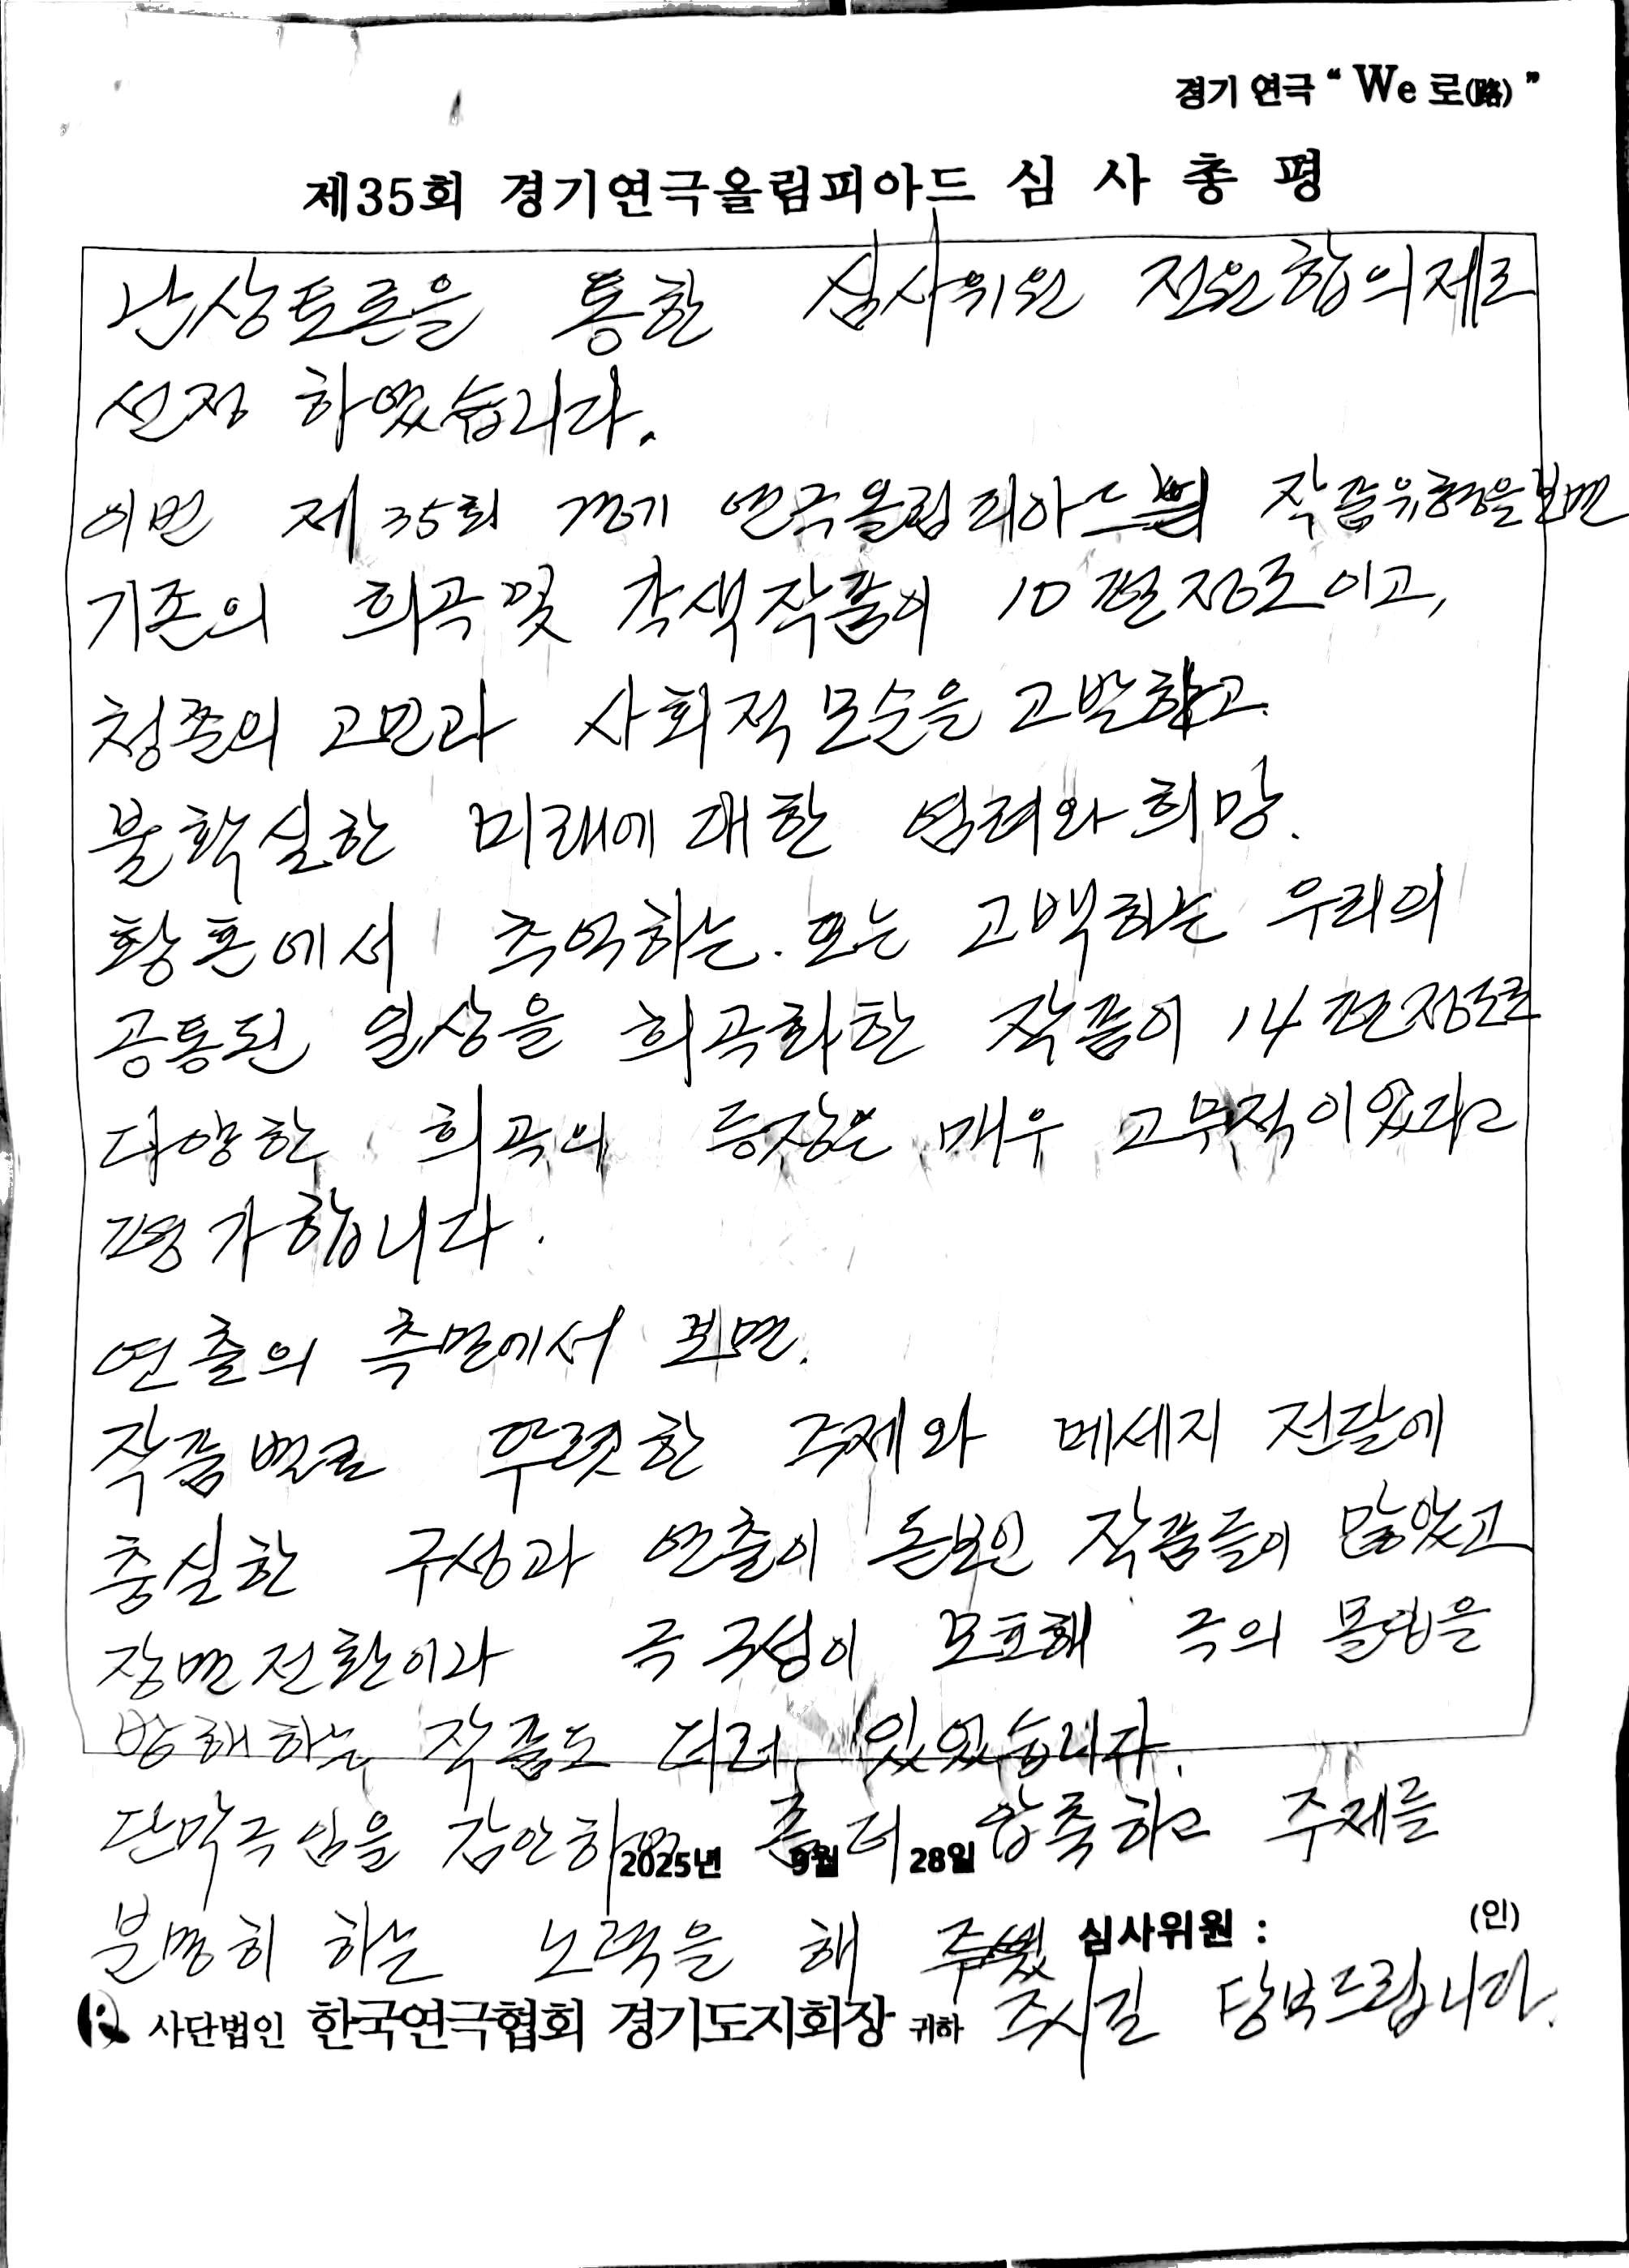 경기 연극 “ We 로(路) ”
제35회 경기연극올림피아드 심 사 총 평
난상토론을 통한 심사위원 전원합의제로
선정 하였습니다.
이번 제 35회 경기 연극올림피아드의 작품유형을보면
기존의 희곡및 각색작품이 10편정도이고,
청춘의 고민과 사회적모순을 고발하고.
불확실한 미래에 대한 염려와희망.
황혼에서 추억하는. 또는 고백하는 우리의
공통된 일상을 희곡화한 작품이 14편정도로
다양한 희곡의 등장은 매우 고무적이었다고
평가합니다.
연출의 측면에서 보면.
작품별로 뚜렷한 주제와 메세지 전달에
충실한 구성과 연출이 돋보인 작품들이 많았고
장면전환이나 극구성이 모호해 극의 몰입을
방해하는 작품도 더러 있었습니다.
단막극임을 감안하여 좀 더 압축하고 주제를
2025년 9월 28일
분명히 하는 노력을 해
심사위원 : (인)
주시길 당부드립니다.
사단법인 한국연극협회 경기도지회장 귀하